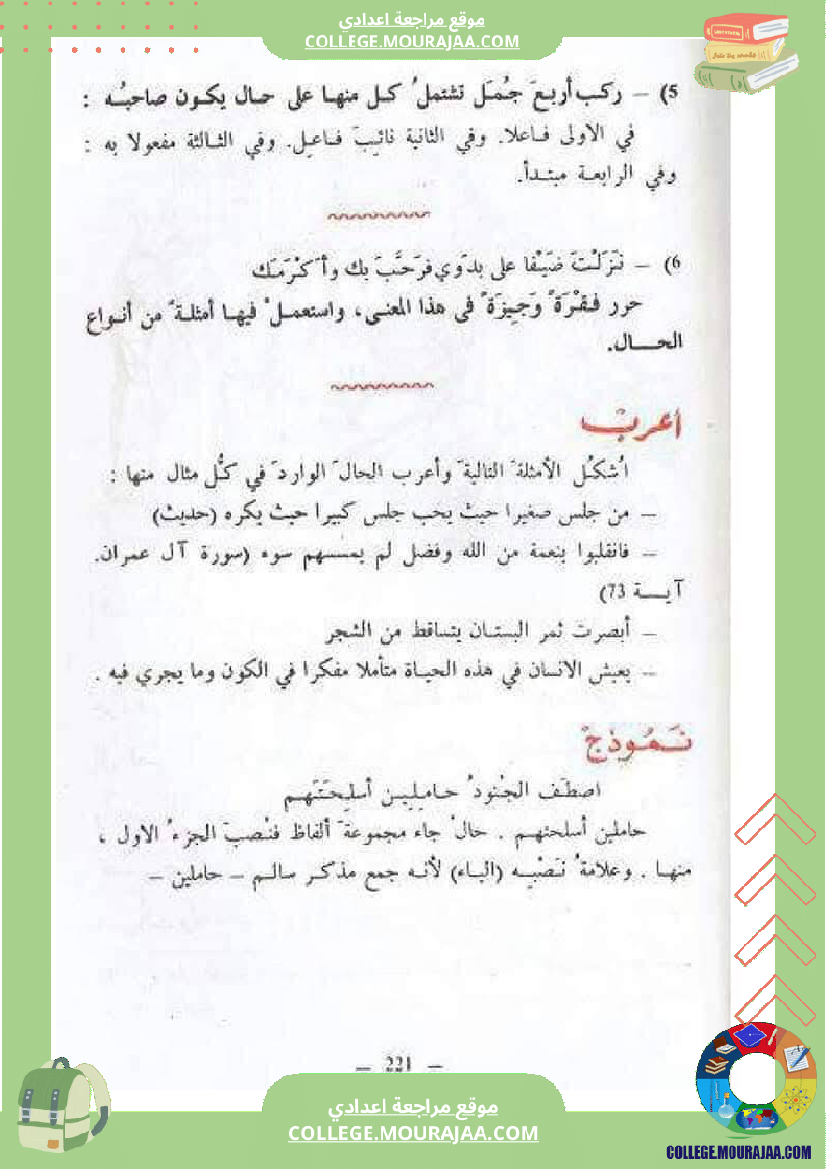 موقع مراجعة اعدادي
COLLEGE.MOURAJAA.COM
5) – ركب أربعَ جُمَل تشتملُ كل منها على حال يكون صاحبُه :
في الأولى فاعلا. وفي الثانية نائِبَ فاعِل. وفي الثالثة مفعولا به :
وفي الرابعة مبتدأ.
6) – نَزَلْتَ ضَيْفا على بدَوي فرَحَّبَ بك وأكْرَمَك
حرر فقْرَةً وَجِيزَةً في هذا المعنى، واستعملْ فيها أمثلةً من أنواع
الحال.
أعربْ
اُشكُل الأمثلةَ التاليةَ وأعرب الحالَ الواردَ في كُل مثال منها :
– من جلس صغيرا حيث يحب جلس كبيرا حيث يكره (حديث)
– فانقلبوا بنعمة من الله وفضل لم يمسسهم سوء (سورة آل عمران.
آية 73)
– أبصرت ثمر البستان يتساقط من الشجر
– يعيش الانسان في هذه الحياة متأملا مفكرا في الكون وما يجري فيه .
نَمُوذجٌ
اصطَف الجُنودُ حامِلِين أسلِحَتَهم
حاملين أسلحتهم . حالٌ جاء مجموعةَ ألفاظ فنُصبَ الجزءُ الاول ،
منها . وعلامةُ نَصْبِه (الياء) لأنه جمع مذكر سالم – حاملين –
– 221 –
موقع مراجعة اعدادي
COLLEGE.MOURAJAA.COM
COLLEGE.MOURAJAA.COM